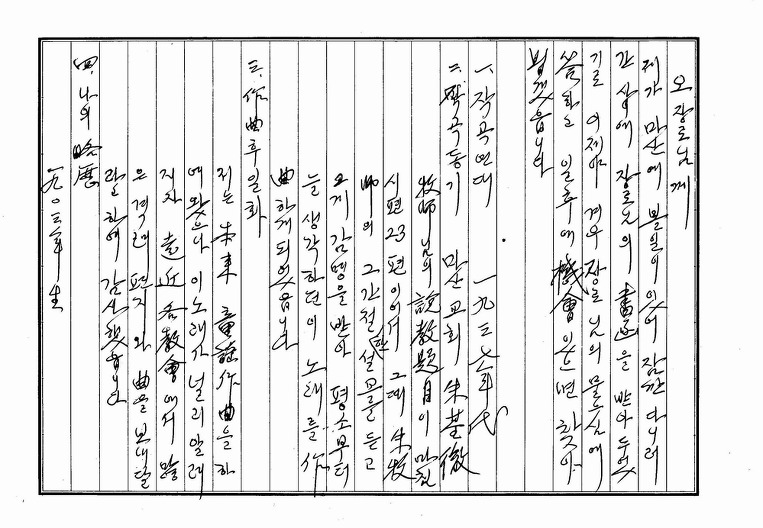 오 장로님께
제가 마산에 볼일이 있어 잠깐 다니러
간 사이에 장로님의 書函을 받아 두었
기로 이제야 겨우 장로님의 물으심에
答하고 일후에 機會 있으면 찾아
뵙겠읍니다
一. 작곡연대 一九三七年代
二. 作曲동기 마산교회 朱基徹
牧師님의 説教題目이 마침
시편 23편이어서 그때 朱牧
師의 그 간절한 설교를 듣고
크게 감명을 받아 평소부터
늘 생각하던 이 노래를 作
曲하게 되었읍니다
三. 作曲후일화
저는 本來 童謠作曲을 하
여 왔으나 이 노래가 널리 알려
지자 遠近 各教會에서 많
은 격려 편지와 曲을 보내 달
란 하여 감사했읍니다
四. 나의 略歷
一九〇三年生